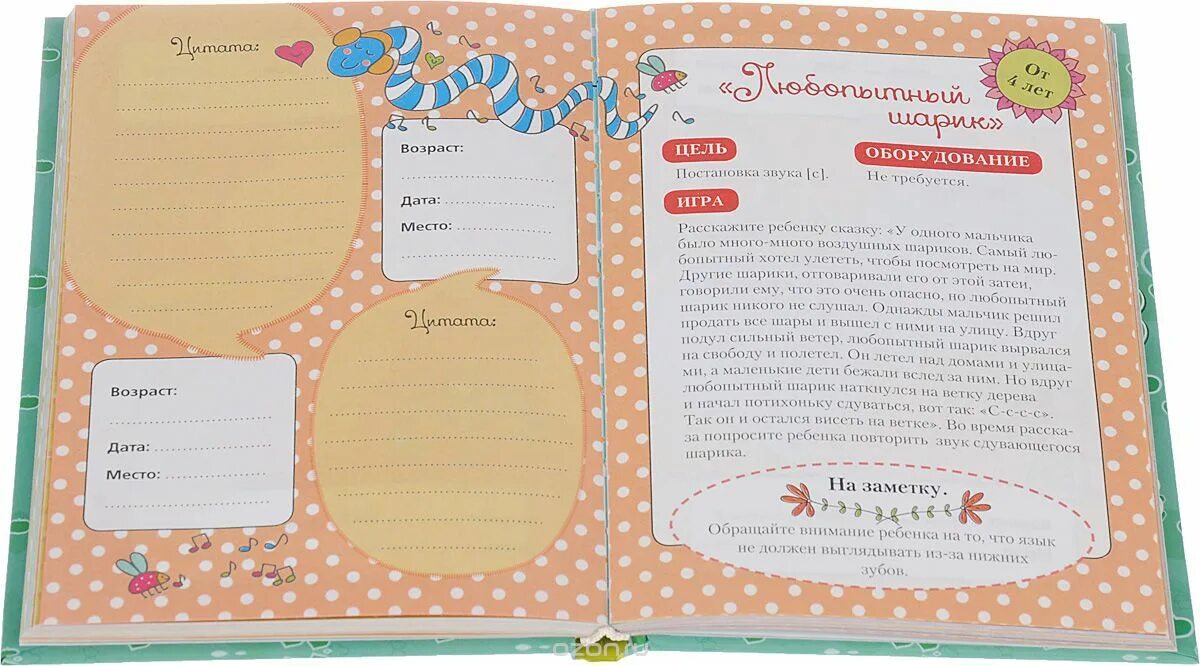 Цитата:
Возраст:
Дата:
Место:
Цитата:
Возраст:
Дата:
Место:
«Любопытный
шарик»
От
4 лет
ЦЕЛЬ
Постановка звука [с].
ОБОРУДОВАНИЕ
Не требуется.
ИГРА
Расскажите ребенку сказку: «У одного мальчика
было много-много воздушных шариков. Самый лю-
бопытный хотел улететь, чтобы посмотреть на мир.
Другие шарики, отговаривали его от этой затеи,
говорили ему, что это очень опасно, но любопытный
шарик никого не слушал. Однажды мальчик решил
продать все шары и вышел с ними на улицу. Вдруг
подул сильный ветер, любопытный шарик вырвался
на свободу и полетел. Он летел над домами и улица-
ми, а маленькие дети бежали вслед за ним. Но вдруг
любопытный шарик наткнулся на ветку дерева
и начал потихоньку сдуваться, вот так: «С-с-с-с».
Так он и остался висеть на ветке». Во время расска-
за попросите ребенка повторить звук сдувающегося
шарика.
На заметку.
Обращайте внимание ребенка на то, что язык
не должен выглядывать из-за нижних
зубов.
ozon.ru